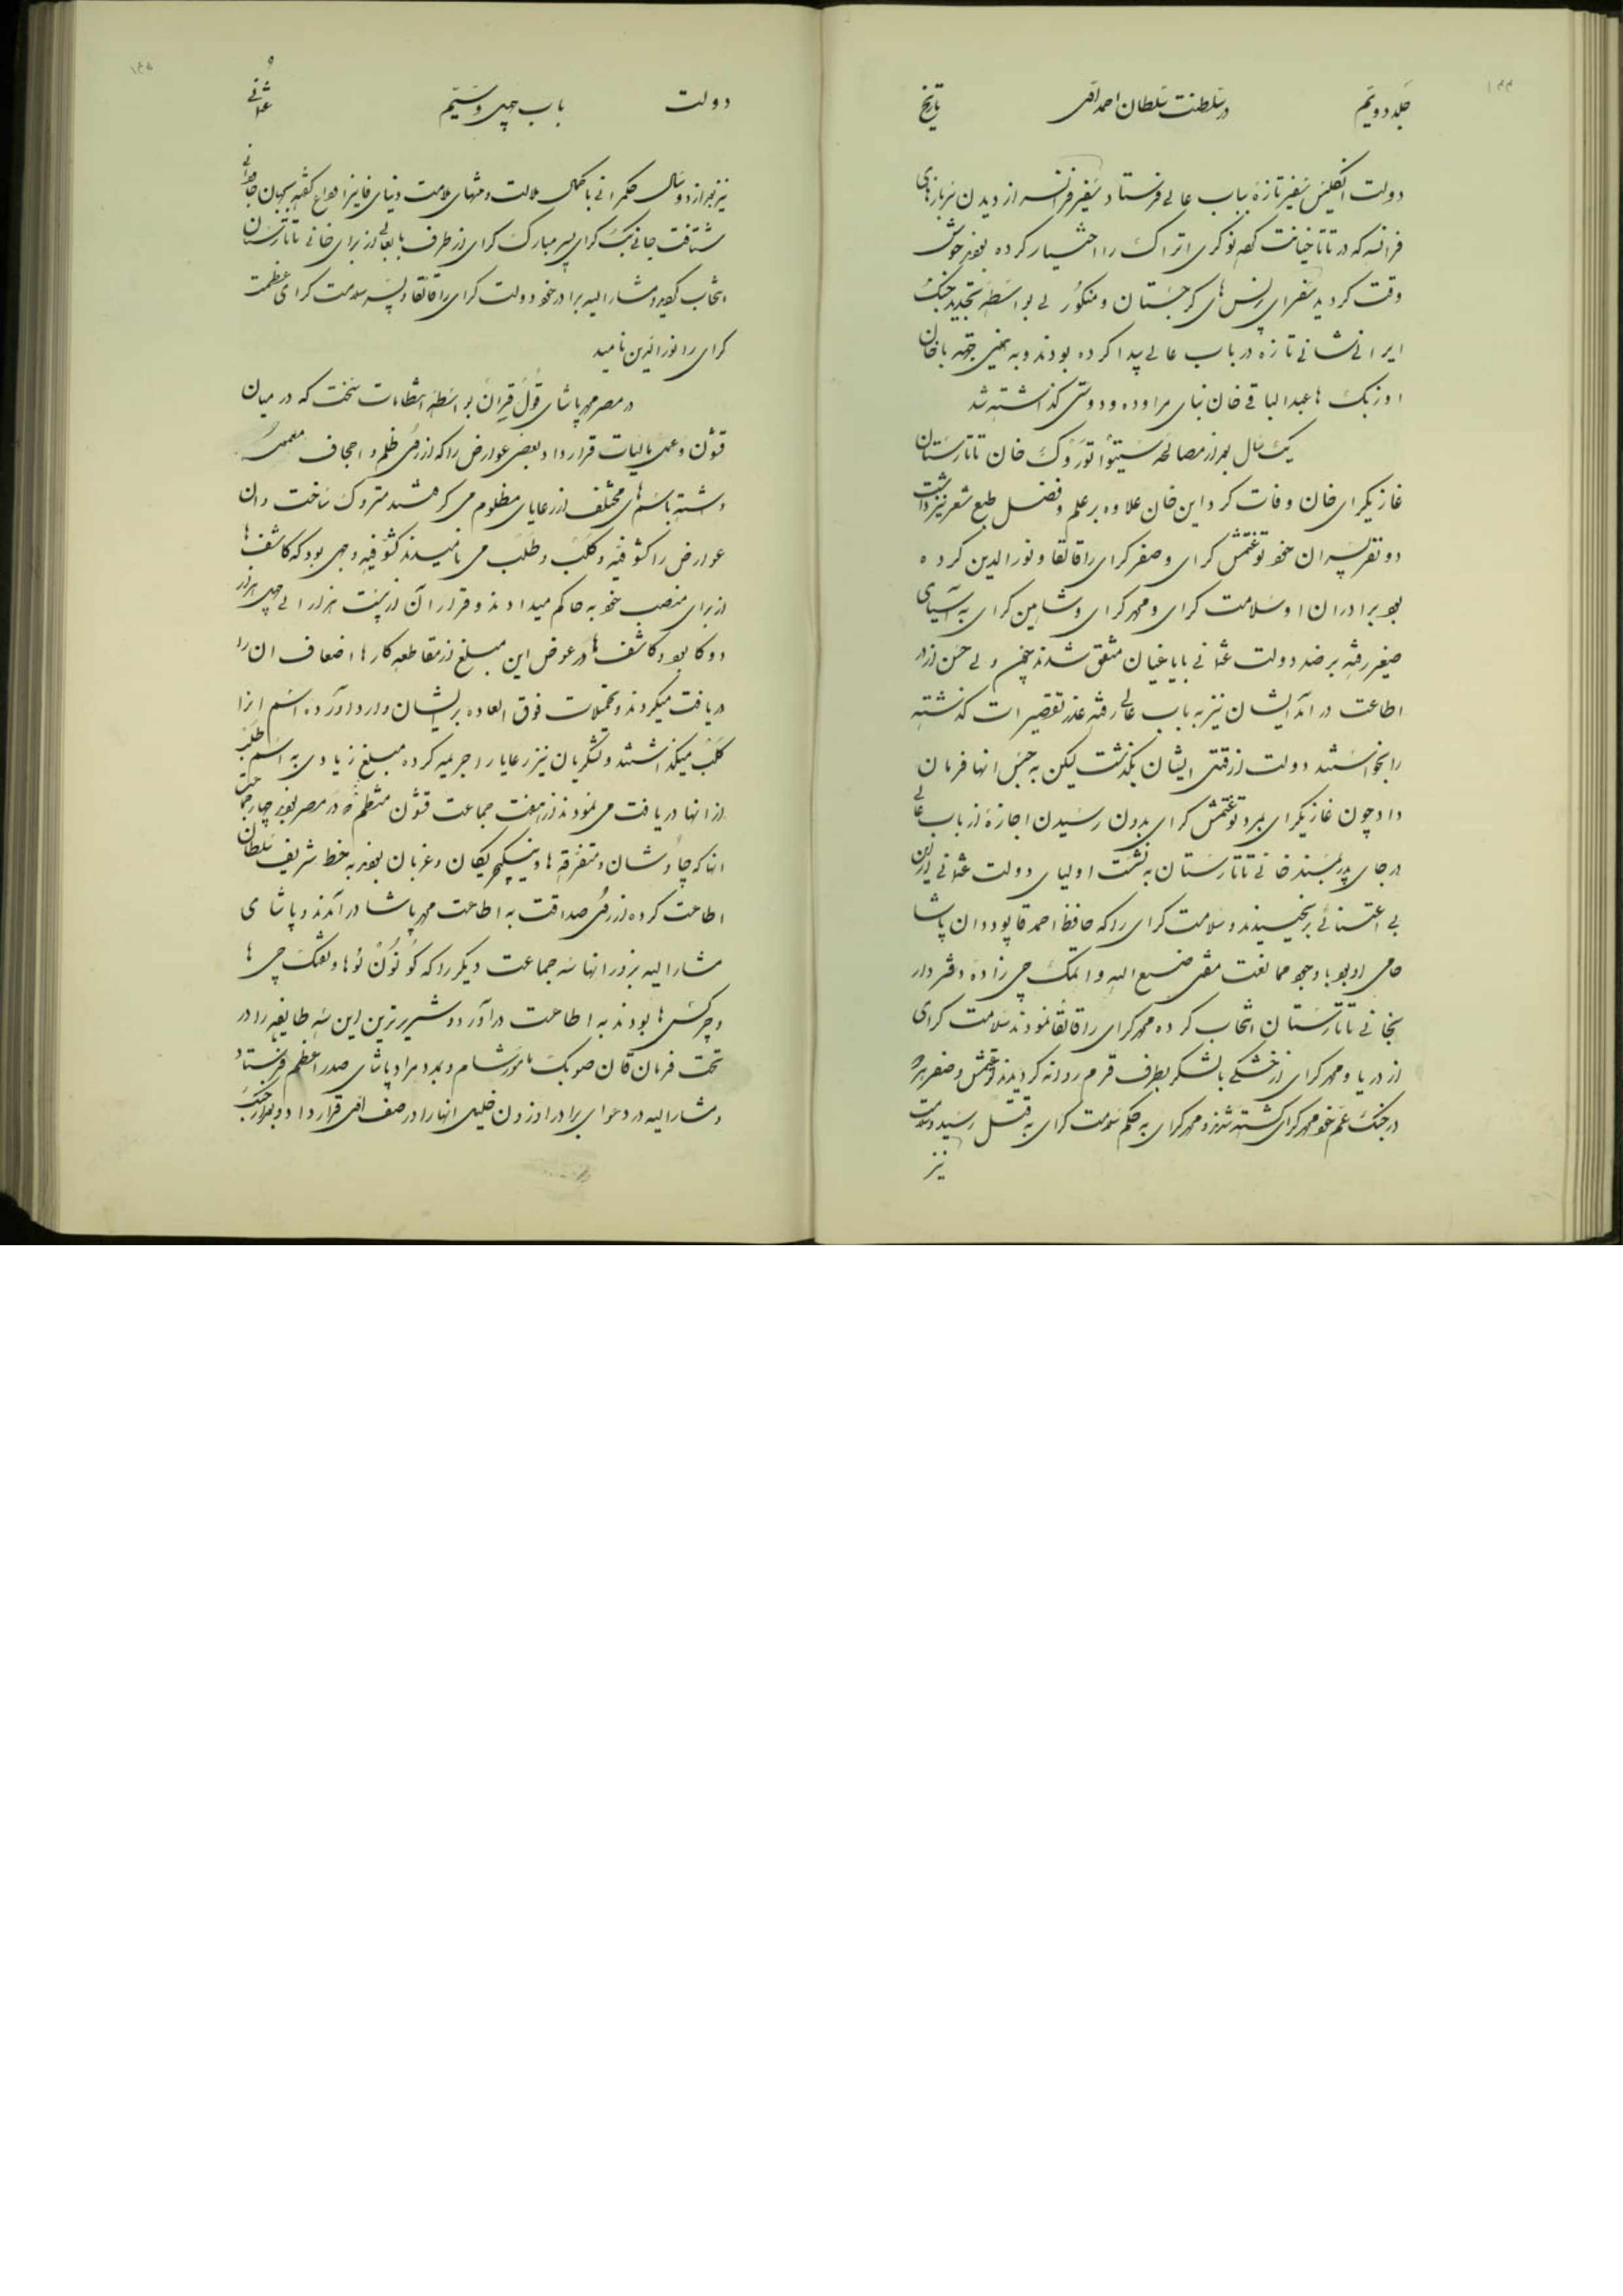 ۱۴۴
جلد دویم در سلطنت سلطان احمد اول تاریخ
دولت انگلیس سفیر تازهٔ بباب عالی فرستاد سفیر فرانسه از دیدن سربازهای
فرانسه که در تاتا خیانت کرده نوکری اتراک را اختیار کرده بودند خوش
وقت کردید سفرای پرنس های کرجستان و منکور لی بواسطهٔ تجدید جنک
ایرانی شانی تازه در باب عالی پیدا کرده بودند و به همین جهة با خان
اوزبک ها عبد الباقی خان بنای مراوده و دوستی کذاشته شد
یک سال بعد از مصالحهٔ سیتواتوروک خان تاتارستان
غازیکرای خان وفات کرد این خان علاوه بر علم و فضل طبع شعر نیز داشت
دو نفر پسران خود توغتمش کرای و صفر کرای را قالقا و نورالدین کرده
بود برادران او سلامت کرای و محمد کرای و شاهین کرای به آسیای
صغیر رفته بر ضد دولت عثمانی با یاغیان متفق شدند چون ولی حسن از در
اطاعت در آمد ایشان نیز به باب عالی رفته عذر تقصیرات کذشته
را بخواستند دولت از قتل ایشان بکذشت لیکن به حبس انها فرمان
داد چون غازیکرای بمرد توغتمش کرای بدون رسیدن اجازهٔ از باب عالی
در جای پدر بمسند خانی تاتارستان به نشست اولیای دولت عثمانی از این
بی اعتنائی برنجیدند و سلامت کرای را که حافظ احمد قاپودان پاشا
حامی او بود با وجود ممانعت مفتی صنع الله و اتمک چی زاده دفتر دار
بخانی تاتارستان انتخاب کرده محمد کرای را قالقا نمودند سلامت کرای
از دریا و محمد کرای از خشکی با لشکر بطرف قرم روانه کردیدند توغتمش و صفر هر دو
در جنک عم خود محمد کرای کشته شدند و محمد کرای به حکم سلامت کرای به قتل رسید و سلامت
نیز
۱۴۵
دولت باب چهل و سیم عثمانی
نیز بعد از دو سال حکمرانی با کمال ملالت و منتهای ملامت دنیای فانی را وداع کفته بجهان جاودانی
شتافت جانی بک کرای پسر مبارک کرای از طرف بابعالی از برای خانی تاتارستان
انتخاب کردید و مشار الیه برادر خود دولت کرای را قالقا و پسر سلامت کرای عظمت
کرای را نورالدین نامید
در مصر محمد پاشای قول قیران بواسطهٔ انتظامات سخت که در میان
قشون و عمل مالیات قرار داد بعض عوارض را که از روی ظلم و اجحاف معمول
داشته باسم های مختلف از رعایای مظلوم می کرفتند متروک ساخت و ان
عوارض را کشوفیه و کلب و طلب می نامیدند کشوفیه وجهی بود که کاشف ها
از برای منصب خود به حاکم میدادند و قدر آن از بیست هزار الی چهل هزار
دوکا بود و کاشف ها در عوض این مبلغ از مقاطعه کارها اضعاف ان را
دریافت میکردند و تحمیلات فوق العاده بر ایشان وارد آورده اسم انرا
کلب میکذاشتند و لشکریان نیز رعایا را جریمه کرده مبلغ زیادی به اسم طلب
از انها دریافت می نمودند از هفت جماعت قشون منتظم که در مصر بودند چهار جماعت
انها که چاوشان و متفرقه ها و ینکیچریکان و عزبان بودند به خط شریف سلطان
اطاعت کرده از روی صداقت به اطاعت محمد پاشا در آمدند و پاشای
مشار الیه بزور انها سه جماعت دیکر را که کونوللوها و تفنک چی ها
و چرکس ها بودند به اطاعت در آورد و شریر ترین این سه طایفه را در
تحت فرمان قان صو بک مامور شام و مدد مراد پاشای صدر اعظم فرستاد
و مشار الیه در دعوای برادر اوزون خلیل انها را در صف اول قرار داد و بعد از جنک